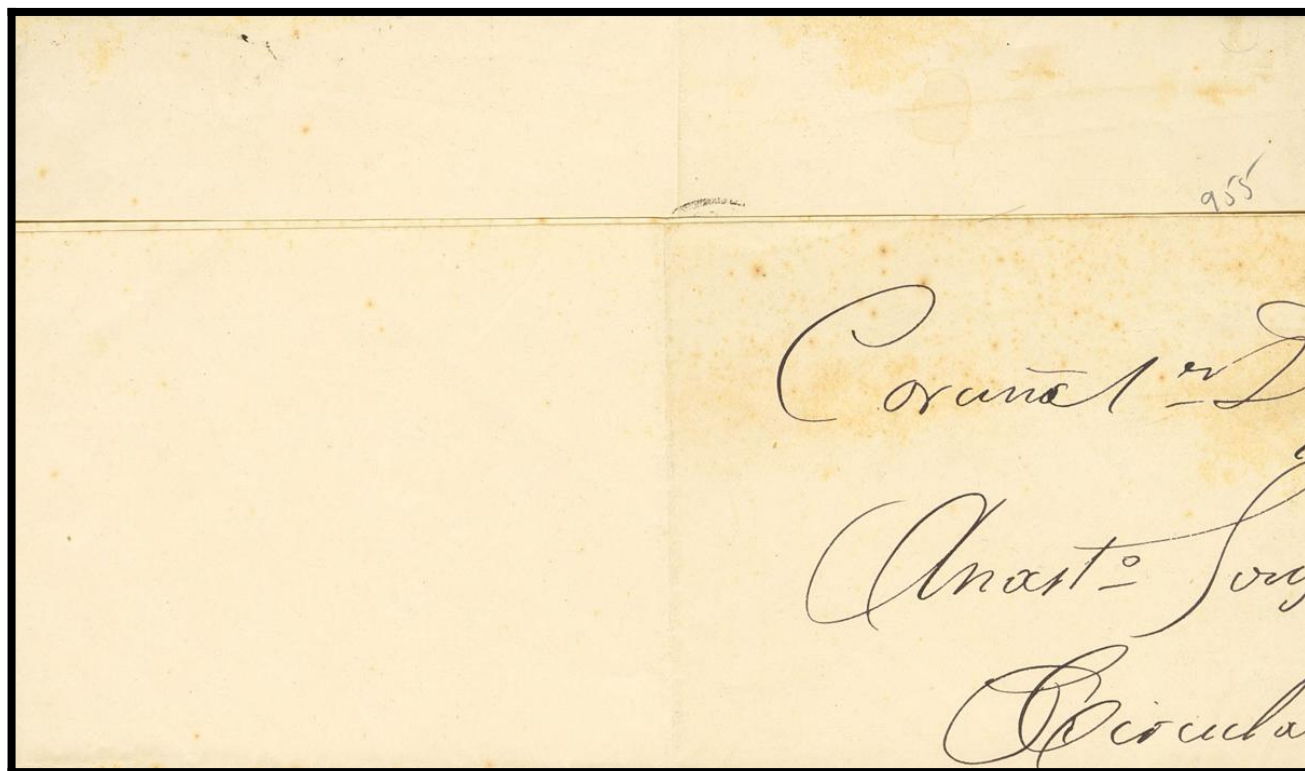 955
Coruña 1er D
Anastº
Circula